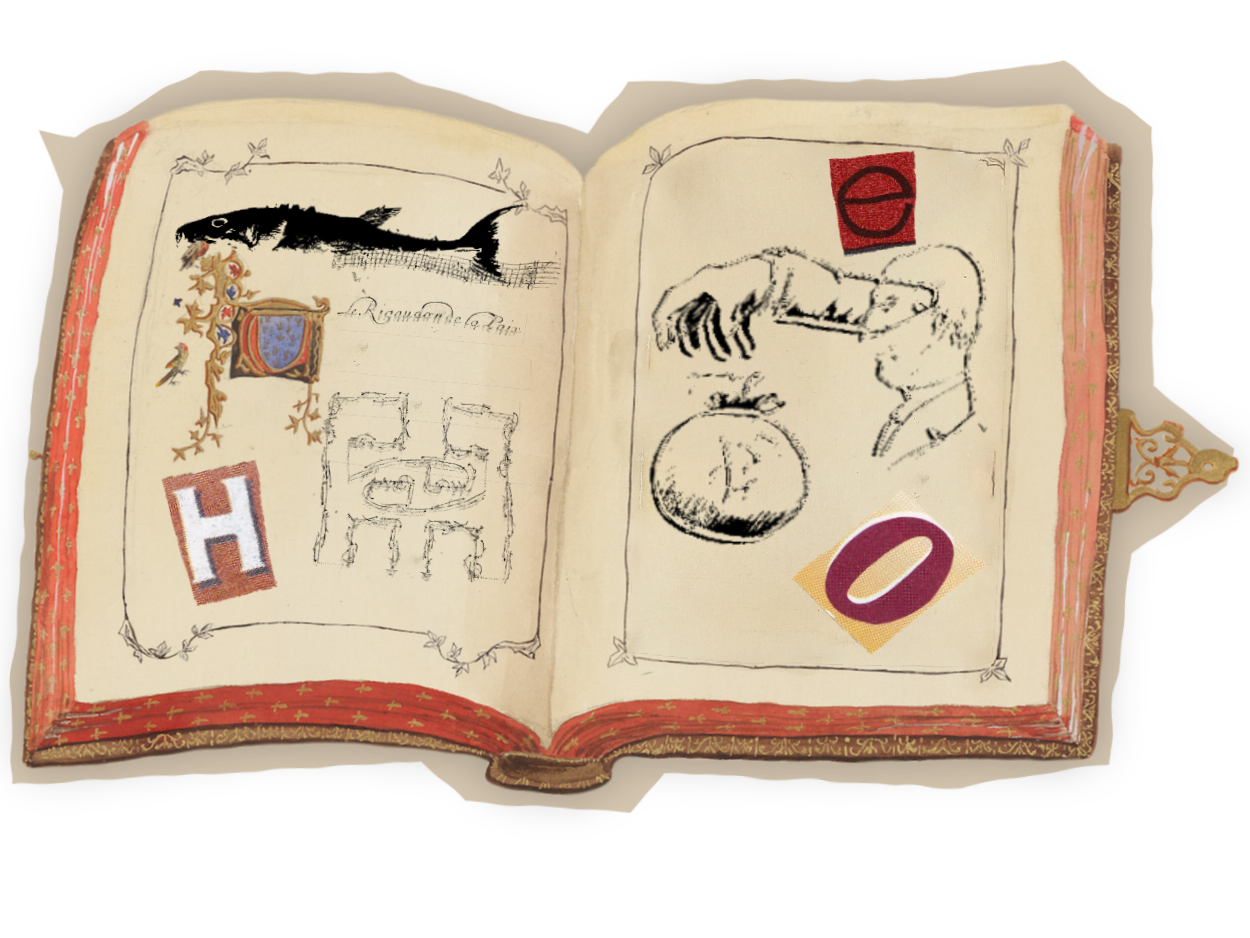 le Rigaudon de la Paix
H
e
O